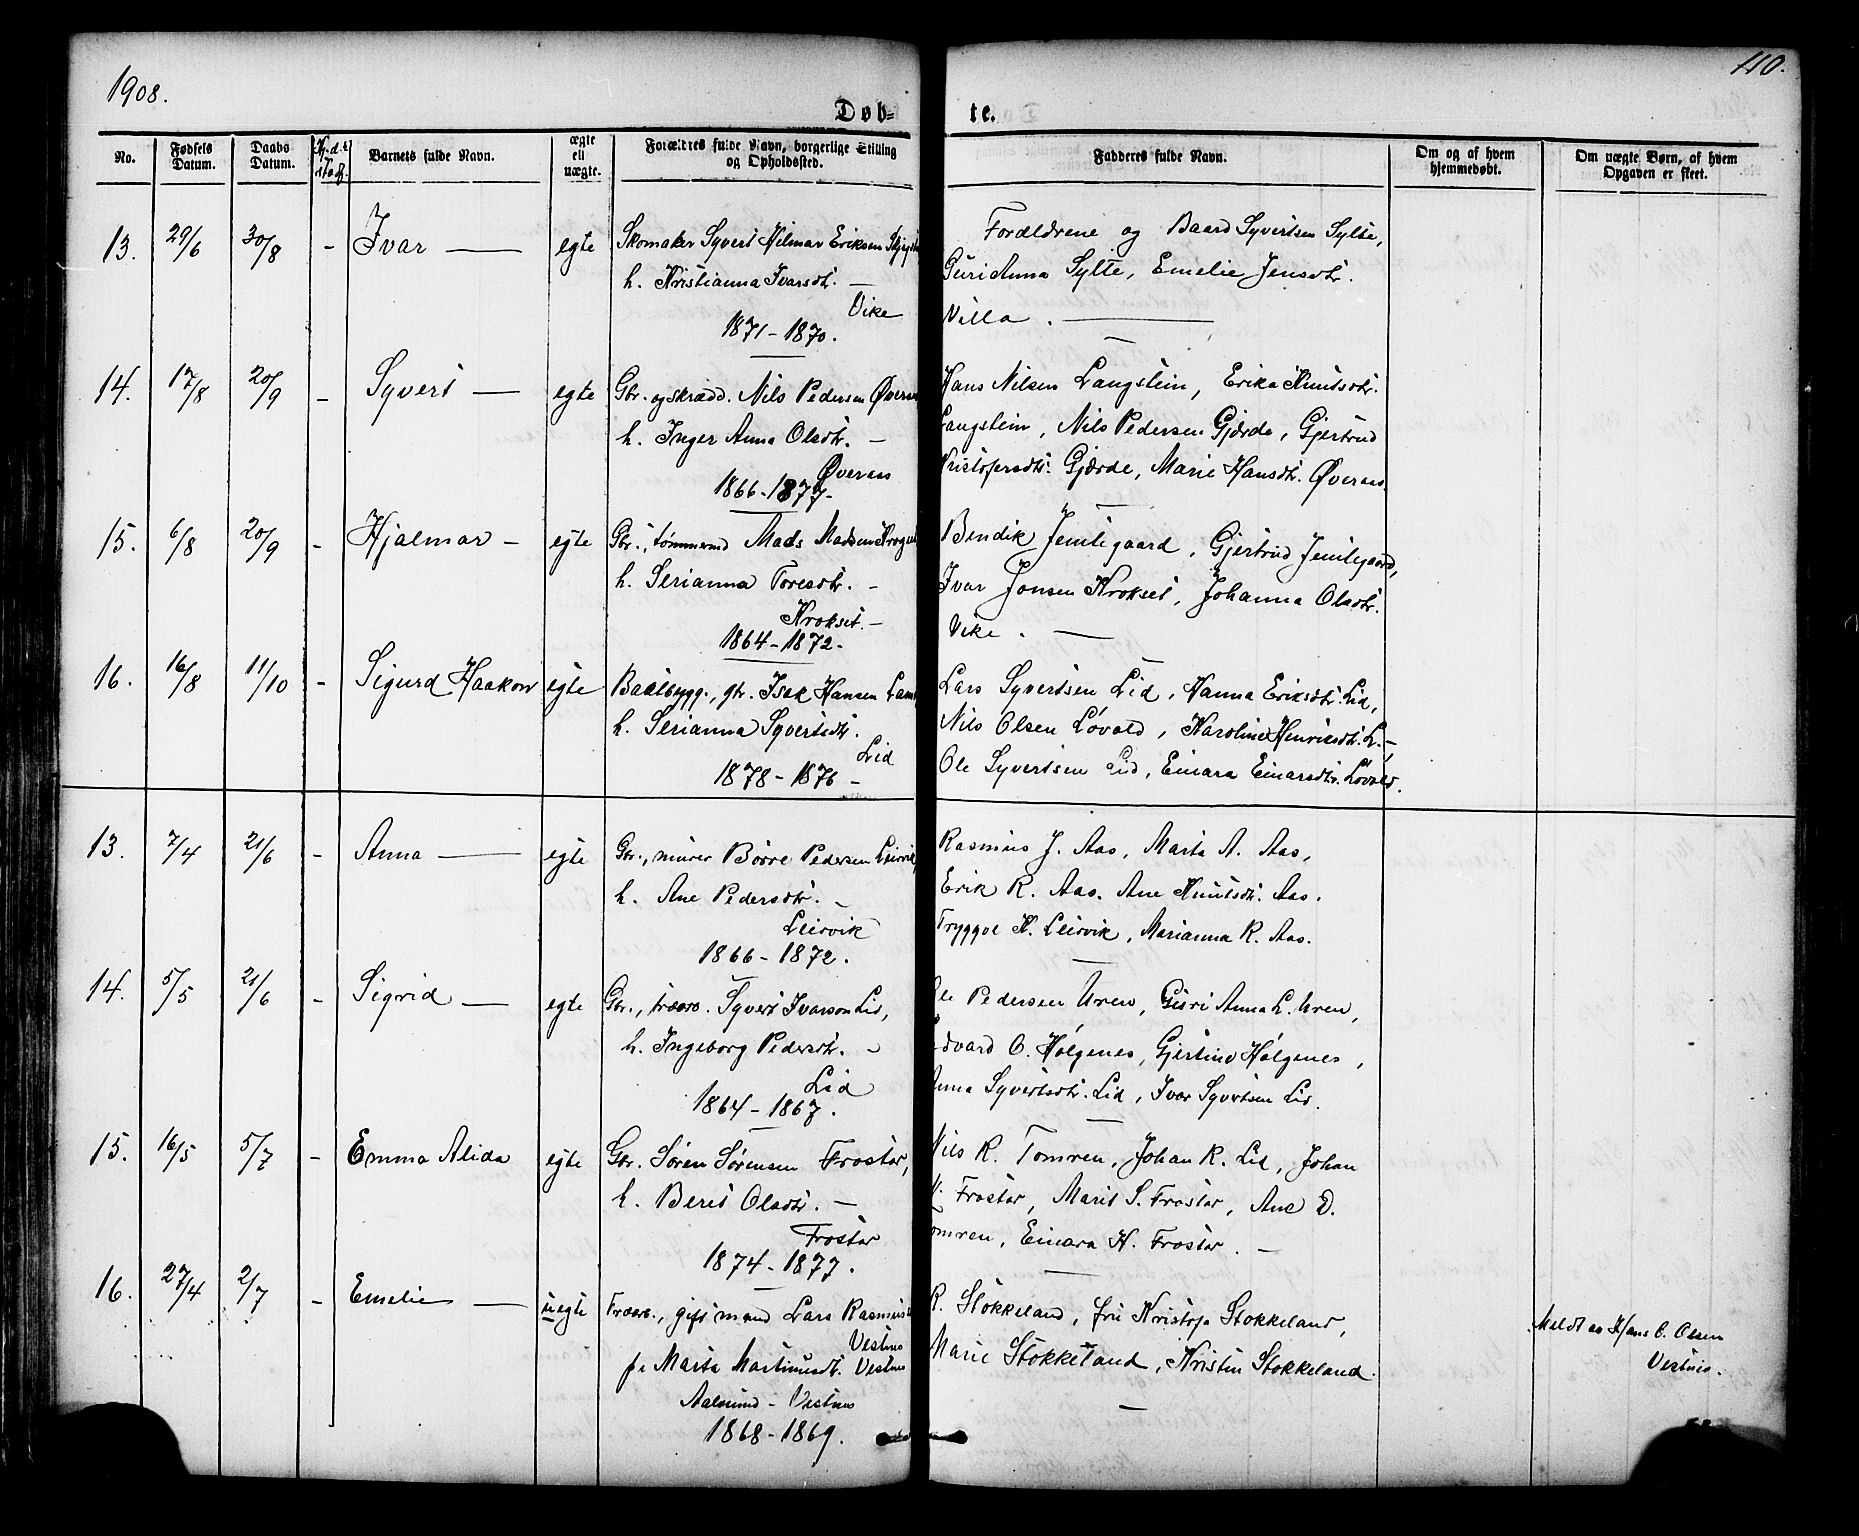 1908.
110.
Døb-
te.
No.
Fødsels Datum.
Daabs Datum.
Barnets fulde Navn.
ægte ell uægte.
Forældres fulde Navn, borgerlige Stilling og Opholdssted.
Fadderes fulde Navn.
Om og af hvem hjemmedøbt.
Om uægte Børn, af hvem Opgaven er skeet.
13. 29/6 30/8 - Ivar — egte Skomaker Syvert Hilmar Eriksen
h. Kristianna Ivarsdtr. —
Vike
1871 - 1870.
Forældrene og Baard Syvertsen Sylte,
Guri Anna Sylte, Emelie Jensdtr.
Villa. —
14. 17/8 20/9 - Syvert — egte Gbr. og skrædd. Nils Pedersen Øveraas
h. Inger Anna Olsdtr. —
Øveraas
1866 - 1877.
Hans Nilsen Langstein, Erika Knutsdtr.
Langstein, Nils Pedersen Gjærde, Gjertrud
Kristofersdtr. Gjærde, Marie Hansdtr. Øveraas.
15. 6/8 20/9 - Hjalmar - egte Gbr., tømmermd Mads Madsen
h. Serianna Toresdtr. -
Krokset. -
1864 - 1872.
Bendik Jemtegaard, Gjertrud Jemtegaard,
Ivar Jonsen Krokset, Johanna Olsdtr.
Vike. —
16. 16/8 11/10 - Sigurd Haakon egte Baatbygg., gbr. Isak Hansen
h. Serianna Syvertsdtr.
Lid
1878 - 1876 -
Lars Syvertsen Lid, Hanna Eriksdtr. Lid,
Nils Olsen Løvold, Karoline Henriksdtr. L. -
Ole Syvertsen Lid, Einara Einarsdtr. Løvold.
13. 7/4 21/6 - Anna — egte Gbr., murer Børre Pedersen Leirvik,
h. Ane Pedersdtr. -
Leirvik
1866 - 1872.
Rasmus J. Aas, Marta A. Aas,
Erik R. Aas. Ane Knutsdtr. Aas.
Tryggve K. Leirvik, Marianna R. Aas.
14. 5/5 21/6 - Sigrid — egte Gbr., træarb. Syvert Ivarson Lid,
h. Ingeborg Pedersdtr. -
Lid
1864 - 1867.
Ole Pedersen Uren, Guri Anna L. Uren,
Edvard O. Hølgenes, Gjertine Hølgenes,
Anna Syvertsdtr. Lid, Ivar Syvertsen Lid.
15. 16/5 5/7 - Emma Alida egte Gbr. Søren Sørensen Frostar,
h. Berit Olsdtr. —
Frostar
1874 - 1877.
Nils R. Tomren, Johan R. Lid, Johan
Frostar, Marit S. Frostar, Ane D.
Tomren, Einara H. Frostar. —
16. 27/4 2/7 - Emelie — uegte Træarb., gift mand Lars Rasmus
Vestnes
p. Marta Martinusdtr. Vestnes
Aalesund - Vestnes
1868 - 1869.
R. Stokkeland, fru Kristofa Stokkeland,
Marie Stokkeland, Kristin Stokkeland.
Meldt av Hans C. Olsen
Vestnes.